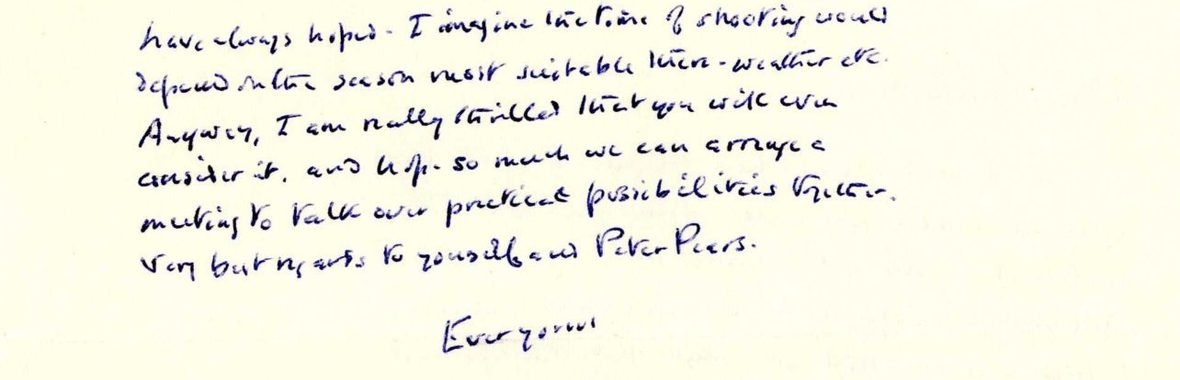 have always hoped - I imagine the time of shooting would
depend on the season most suitable there - weather etc.
Anyway, I am really thrilled that you will even
consider it, and hope so much we can arrange a
meeting to talk over practical possibilities together.
Very best regards to yourself and Peter Pears.
Ever yours